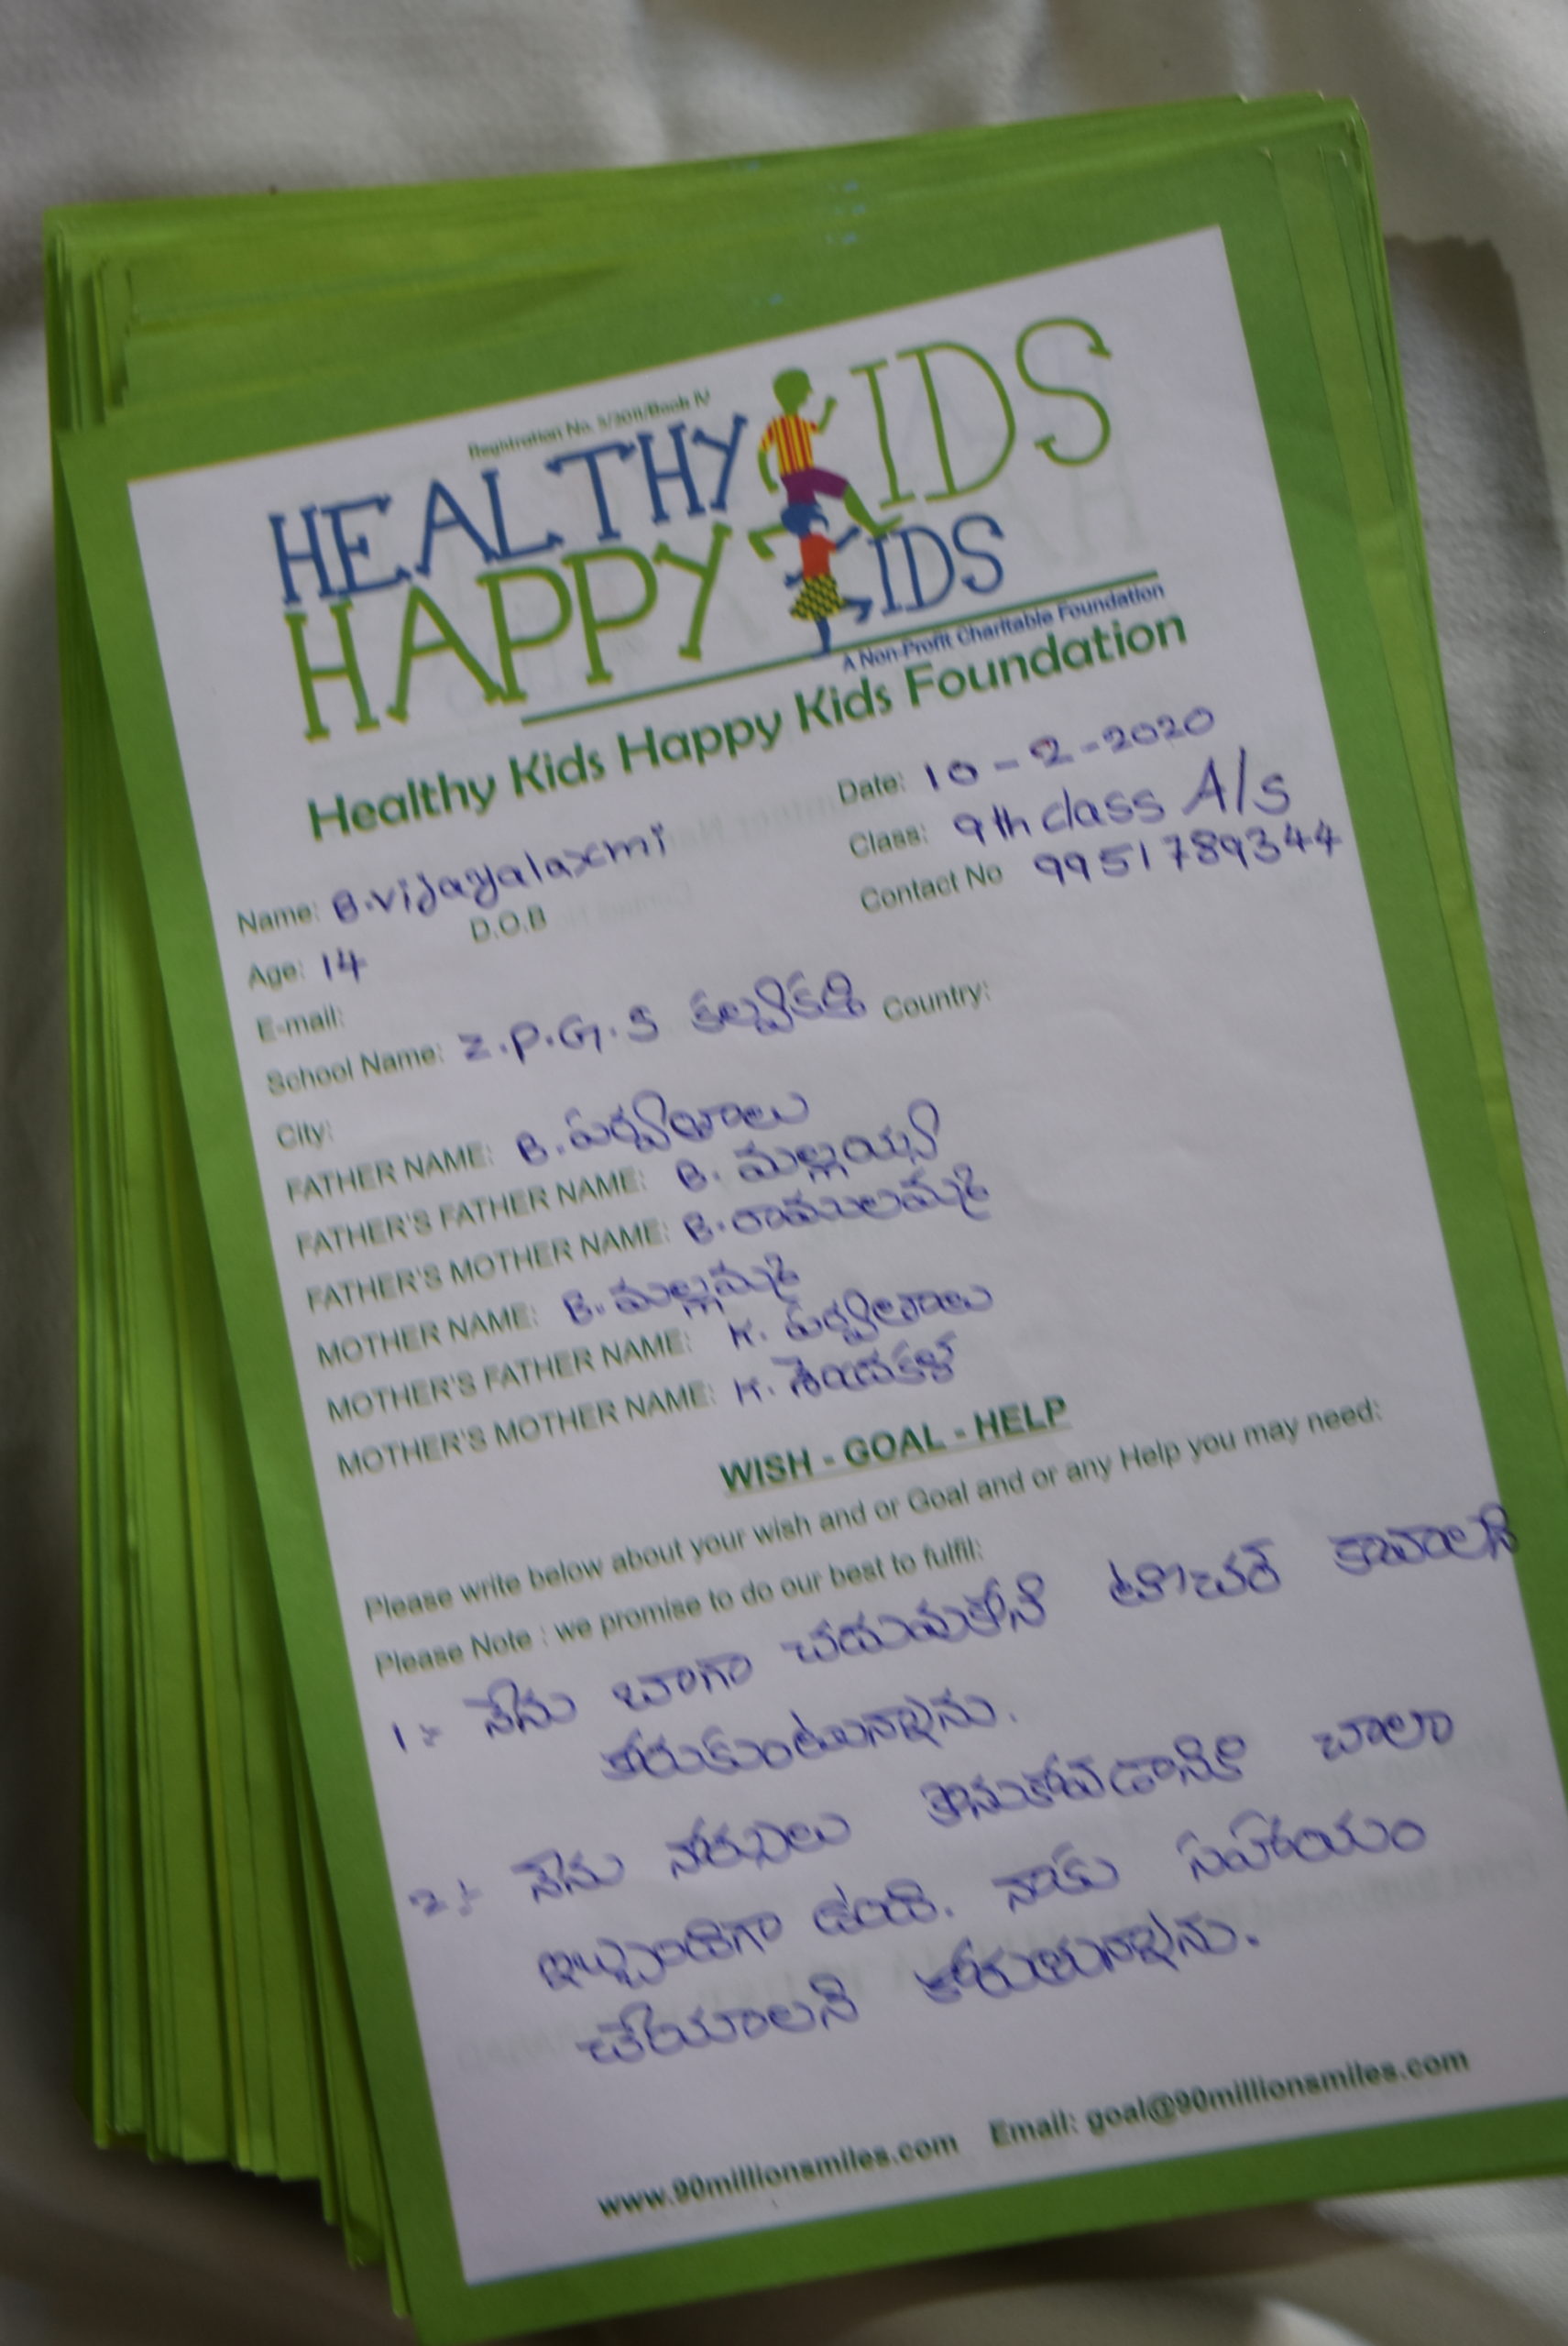 Registration No. 5/2011/Book IV
HEALTHY KIDS
HAPPY KIDS
A Non-Profit Charitable Foundation
Healthy Kids Happy Kids Foundation
Date: 10-2-2020
Name: B.vijayalaxmi Class: 9th class A/s
Age: 14 D.O.B Contact No 9951789344
E-mail:
School Name: Z.P.G.S కల్వకుర్తి Country:
City:
FATHER NAME: B. పర్వతాలు
FATHER'S FATHER NAME: B. మల్లయ్య
FATHER'S MOTHER NAME: B. రాములమ్మ
MOTHER NAME: B. మల్లమ్మ
MOTHER'S FATHER NAME: K. పర్వతాలు
MOTHER'S MOTHER NAME: K.
WISH - GOAL - HELP
Please write below about your wish and or Goal and or any Help you may need:
Please Note : we promise to do our best to fulfil:
1:- నేను బాగా చదువుకోని టీచర్ కావాలని
కోరుకుంటున్నాను.
2:- నేను నోట్సులు కొనుకోవడానికి చాలా
ఇబ్బందిగా ఉంది. నాకు సహాయం
చేయాలని కోరుతున్నాను.
www.90millionsmiles.com Email: goal@90millionsmiles.com